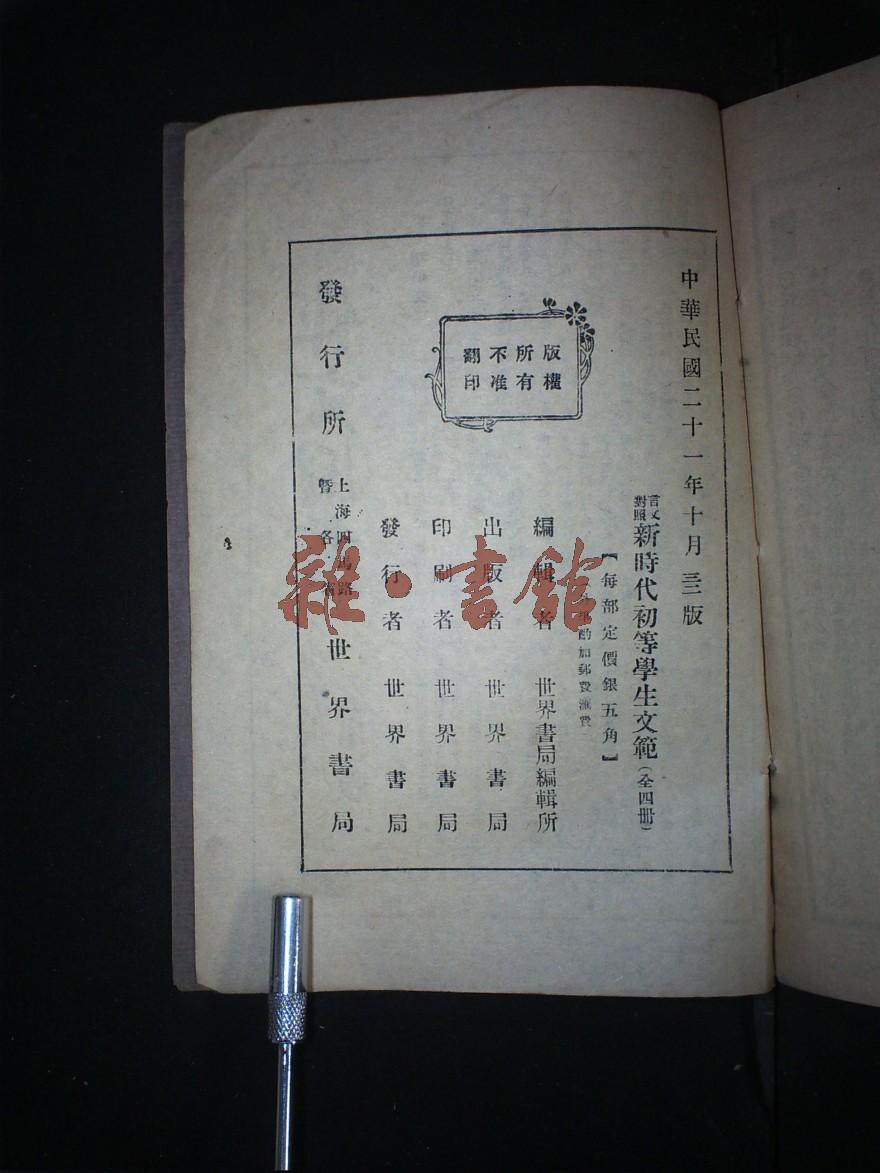 中華民國二十一年十月三版
言文對照新時代初等學生文範（全四冊）
【每部定價銀五角】
酌加郵費滙費
版權
所有
不准
翻印
編輯者 世界書局編輯所
出版者 世界書局
印刷者 世界書局
發行者 世界書局
發行所 上海四馬路暨各省世界書局
雜·書館